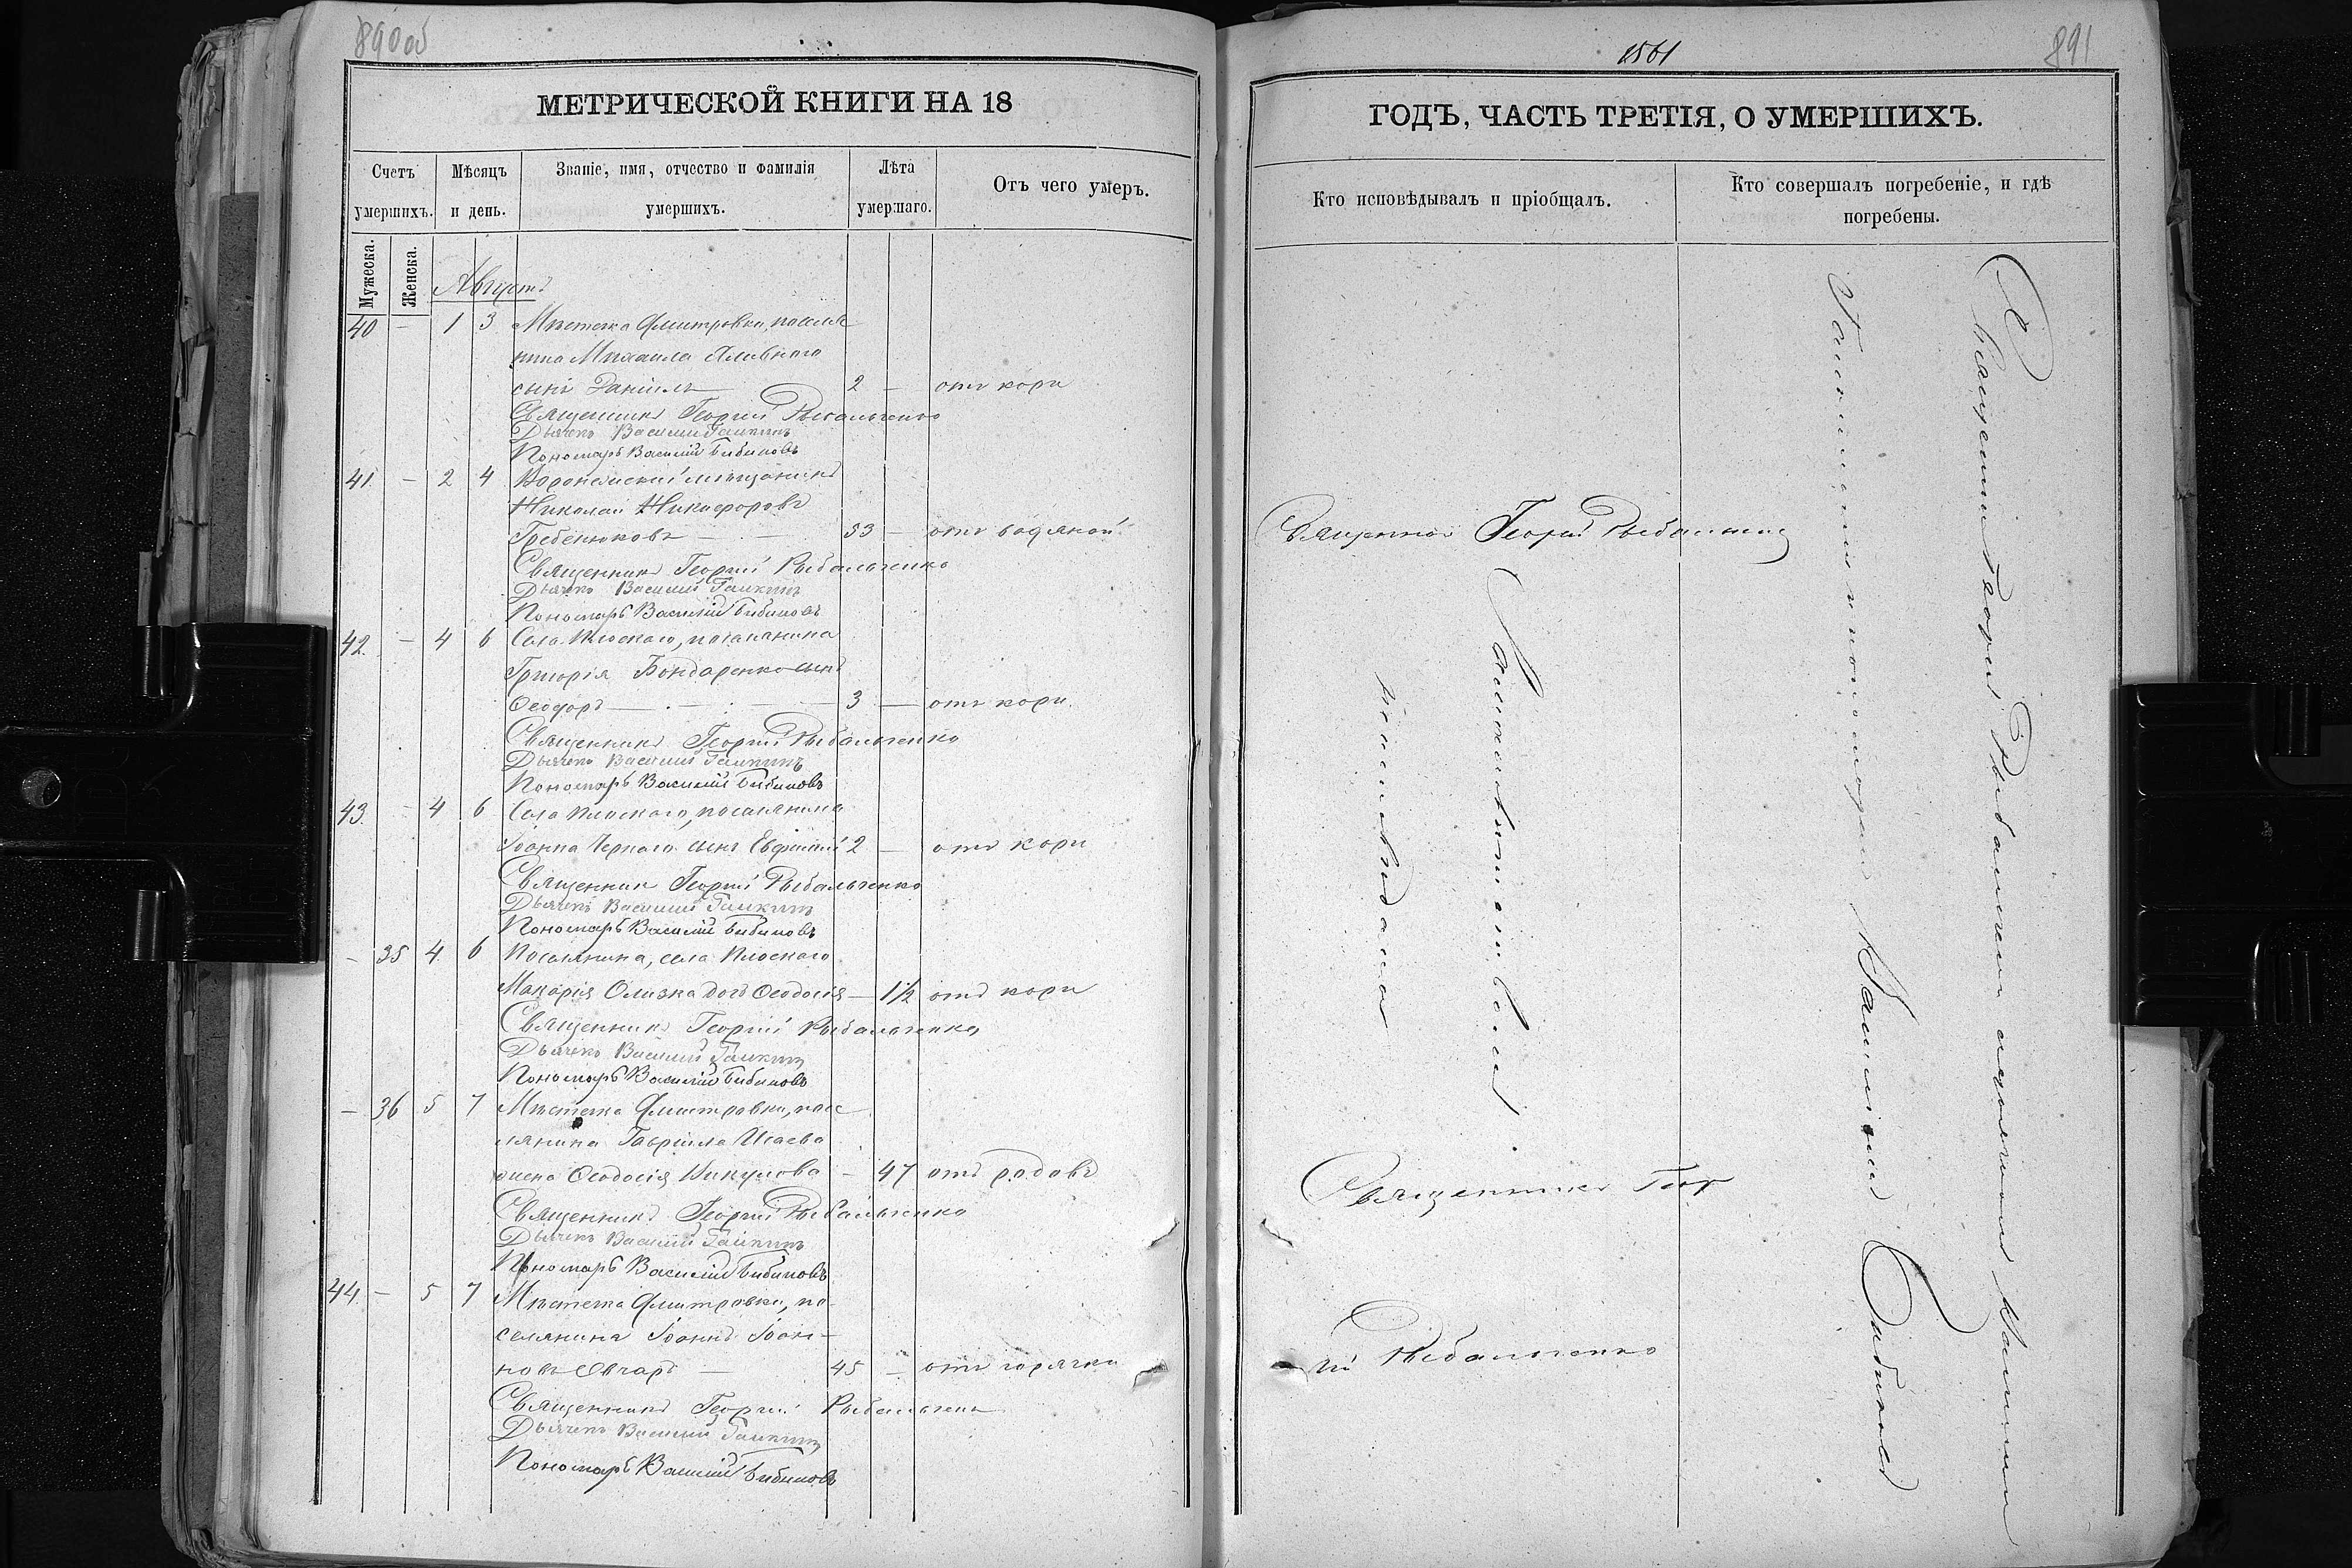 890 об
МЕТРИЧЕСКОЙ КНИГИ НА 18
Счетъ умершихъ.
Мѣсяцъ и день.
Званіе, имя, отчество и фамилія умершихъ.
Лѣта умершаго.
Отъ чего умеръ.
Мужеска.
Женска.
Августъ
40 – 1 3 Мѣстечка Дмитровки, поселя
нина Михаила
сынъ Даніилъ 2 – отъ кори
Священникъ Георгій Рыбальченко
Дьячекъ Василій Галкинъ
Пономарь Василій Бибиковъ
41. – 2 4 мѣщанинъ
Николай Никифоровъ
Гребенюковъ – 53 – отъ водяной
Священникъ Георгій Рыбальченко
Дьячекъ Василій Галкинъ
Пономарь Василій Бибиковъ
42. – 4 6 Села Плоскаго, поселянина
Григорія Бондаренко сынъ
Ѳеодоръ – 3 – отъ кори.
Священникъ Георгій Рыбальченко
Дьячекъ Василій Галкинъ
Пономарь Василій Бибиковъ
43. – 4 6 Села Плоскаго, поселянина
Іоанна Чернаго сынъ Евфимій 2 – отъ кори
Священник Георгій Рыбальченко
Дьячекъ Василій Галкинъ
Пономарь Василій Бибиковъ
– 35 4 6 Поселянина, села Плоскаго
Макарія дочь Ѳеодосія – 1½ отъ кори
Священникъ Георгій Рыбальченко
Дьячекъ Василій Галкинъ
Пономарь Василій Бибиковъ
– 36 5 7 Мѣстечка Дмитровки, посе
лянина Гавріила Исаева
жена Ѳеодосія Викулова – 47 отъ родовъ
Священникъ Георгій Рыбальченко
Дьячекъ Василій Галкинъ
Пономарь Василій Бибиковъ
44. – 5 7 Мѣстечка Дмитровки, по-
селянинъ Іоаннъ Іоан-
новъ Овчаръ – 45 – отъ горячки
Священникъ Георгій Рыбальченко
Дьячекъ Василій Галкинъ
Пономарь Василій Бибиковъ
1861
891
ГОДЪ, ЧАСТЬ ТРЕТІЯ, О УМЕРШИХЪ.
Кто исповѣдывалъ и пріобщалъ.
Кто совершалъ погребеніе, и гдѣ погребены.
Священникъ Георгій Рыбальченко
исповѣдана
Священникъ Геор
гій Рыбальченко
Священникъ Георгій Рыбальченко съ дьячкомъ Василіемъ
Галкинымъ и пономаремъ Василіемъ Бибиковымъ